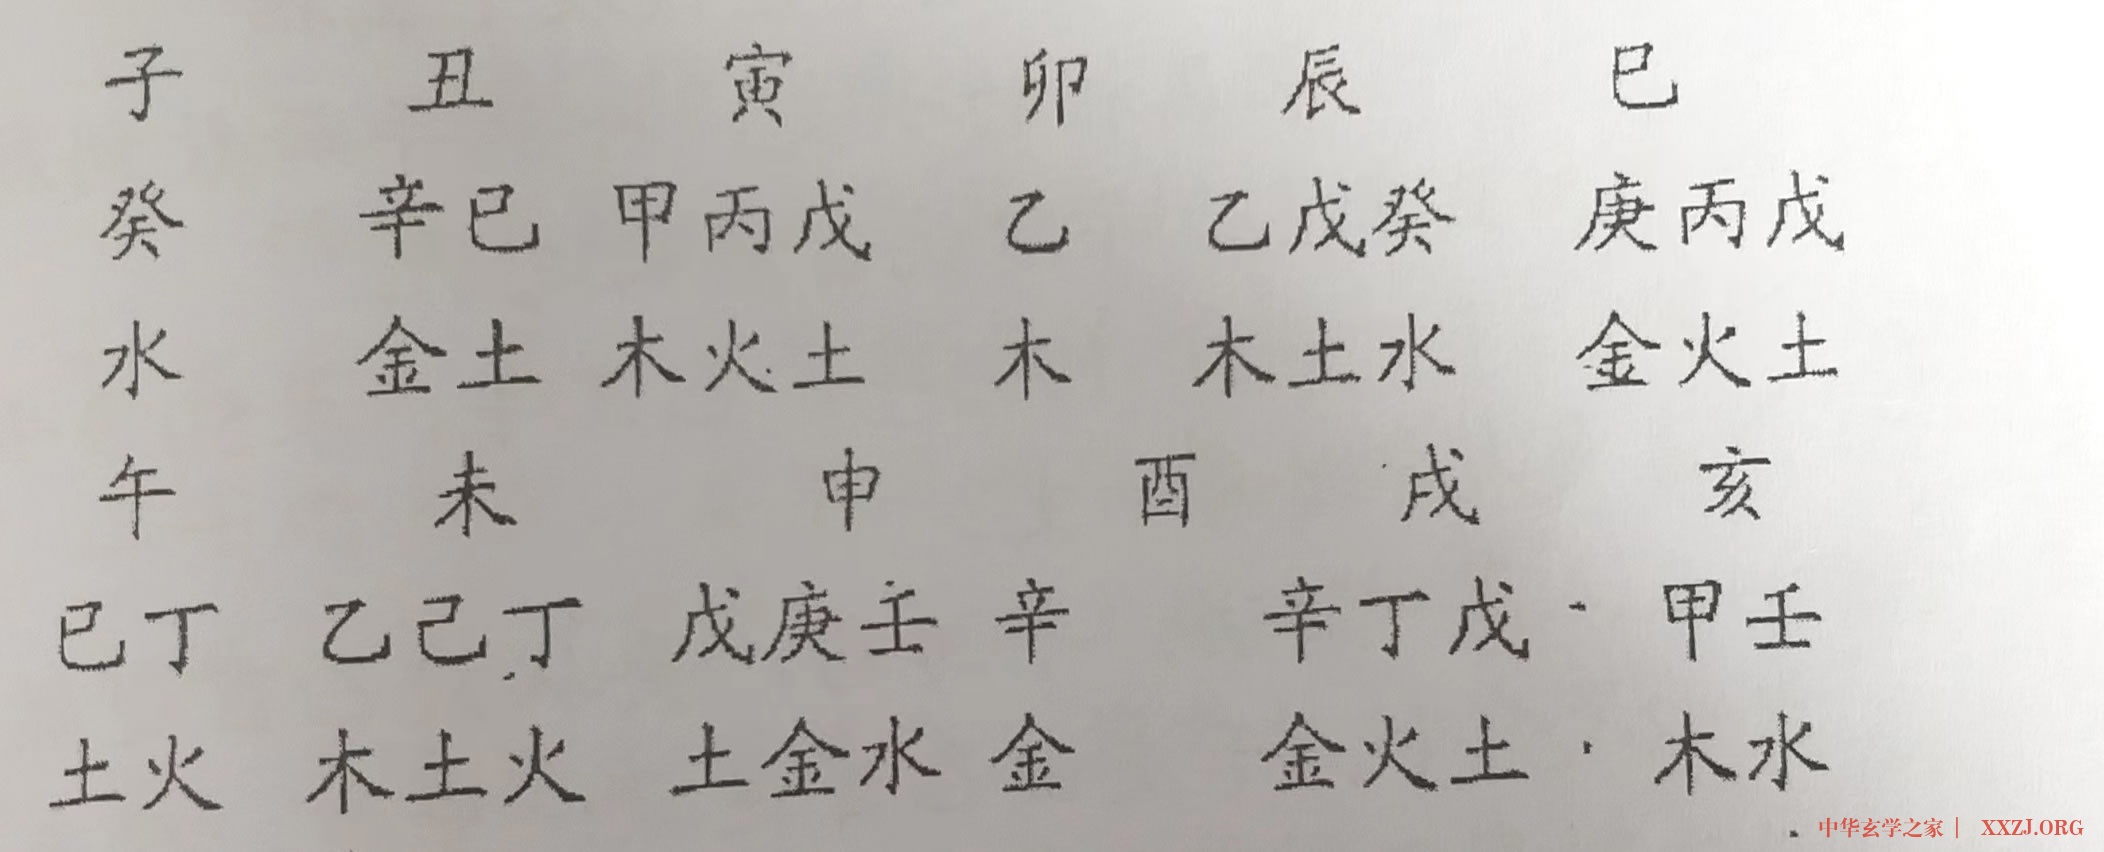 子 丑 寅 卯 辰 巳
癸 辛已 甲丙戊 乙 乙戊癸 庚丙戊
水 金土 木火土 木 木土水 金火土
午 未 申 酉 戌 亥
已丁 乙己丁 戊庚壬 辛 辛丁戊 甲壬
土火 木土火 土金水 金 金火土 木水
中华玄学之家 | XXZJ.ORG